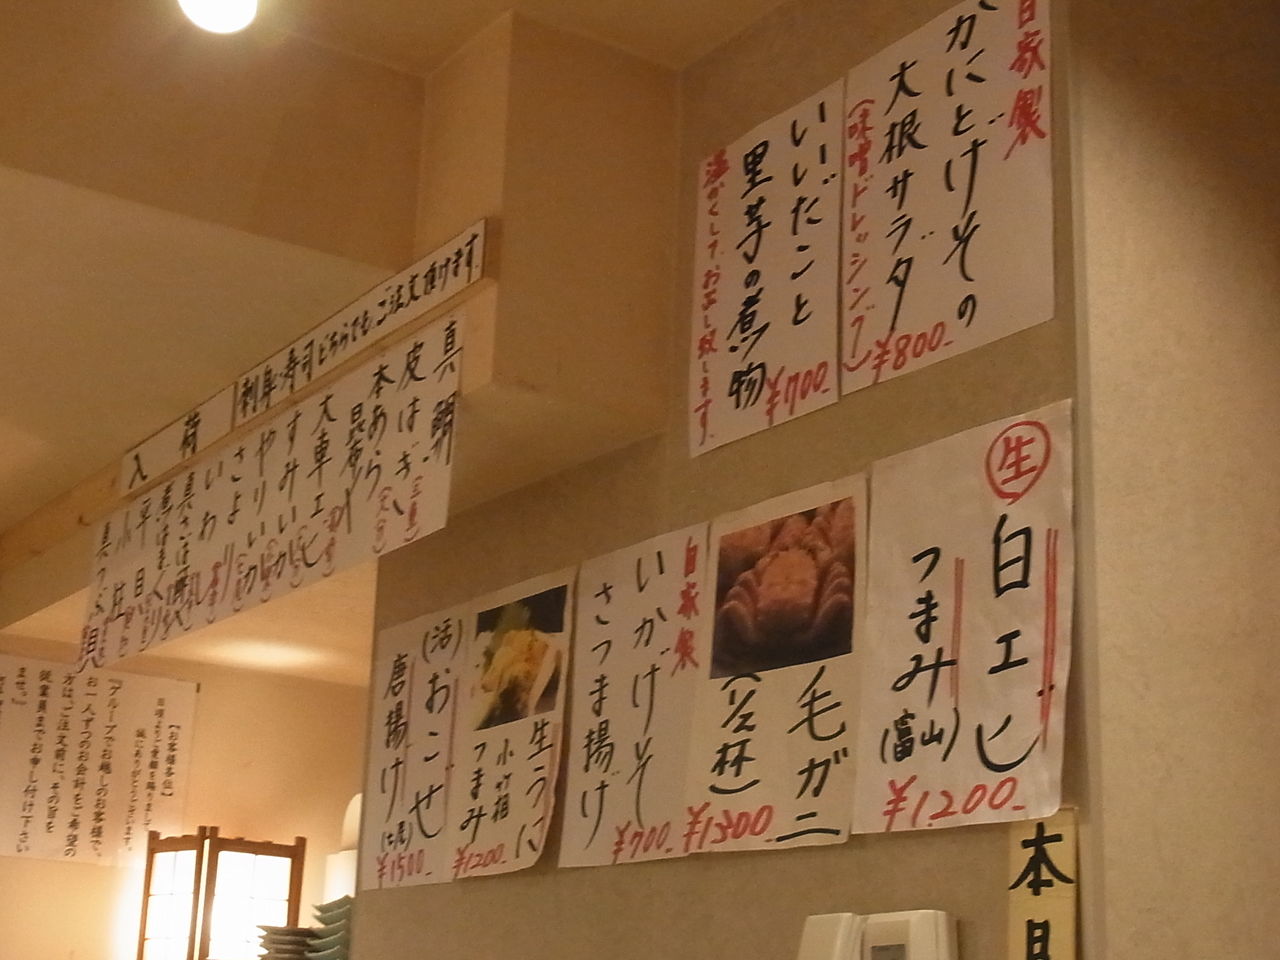 自家製
かにとげその
大根サラダ
(味噌ドレッシング)
¥800-
いいだこと
里芋の煮物
¥700-
温かくしてお出し致します。
入荷
刺身・寿司どちらでも、ご注文頂けます。
真鯛
皮はぎ
本あら
昆布〆
大車エビ
すみいか
やりいか
さより
いわし
真さば
煮はまぐり
平目
小柱
真つぶ貝
生
白エビ
つまみ(富山)
¥1,200-
毛ガニ
(1/2杯)
¥1300
自家製
いかげそ
さつま揚げ
¥700-
生うに
つまみ
¥1200-
(活)おこぜ
唐揚げ
¥1500-
【お客様各位】
日頃よりご愛顧を賜りまして
誠にありがとうございます。
『グループでお越しのお客様で、
お一人ずつのお会計をご希望の
方は、ご注文前に、その旨を
従業員までお申し付け下さい
ませ。』
本日